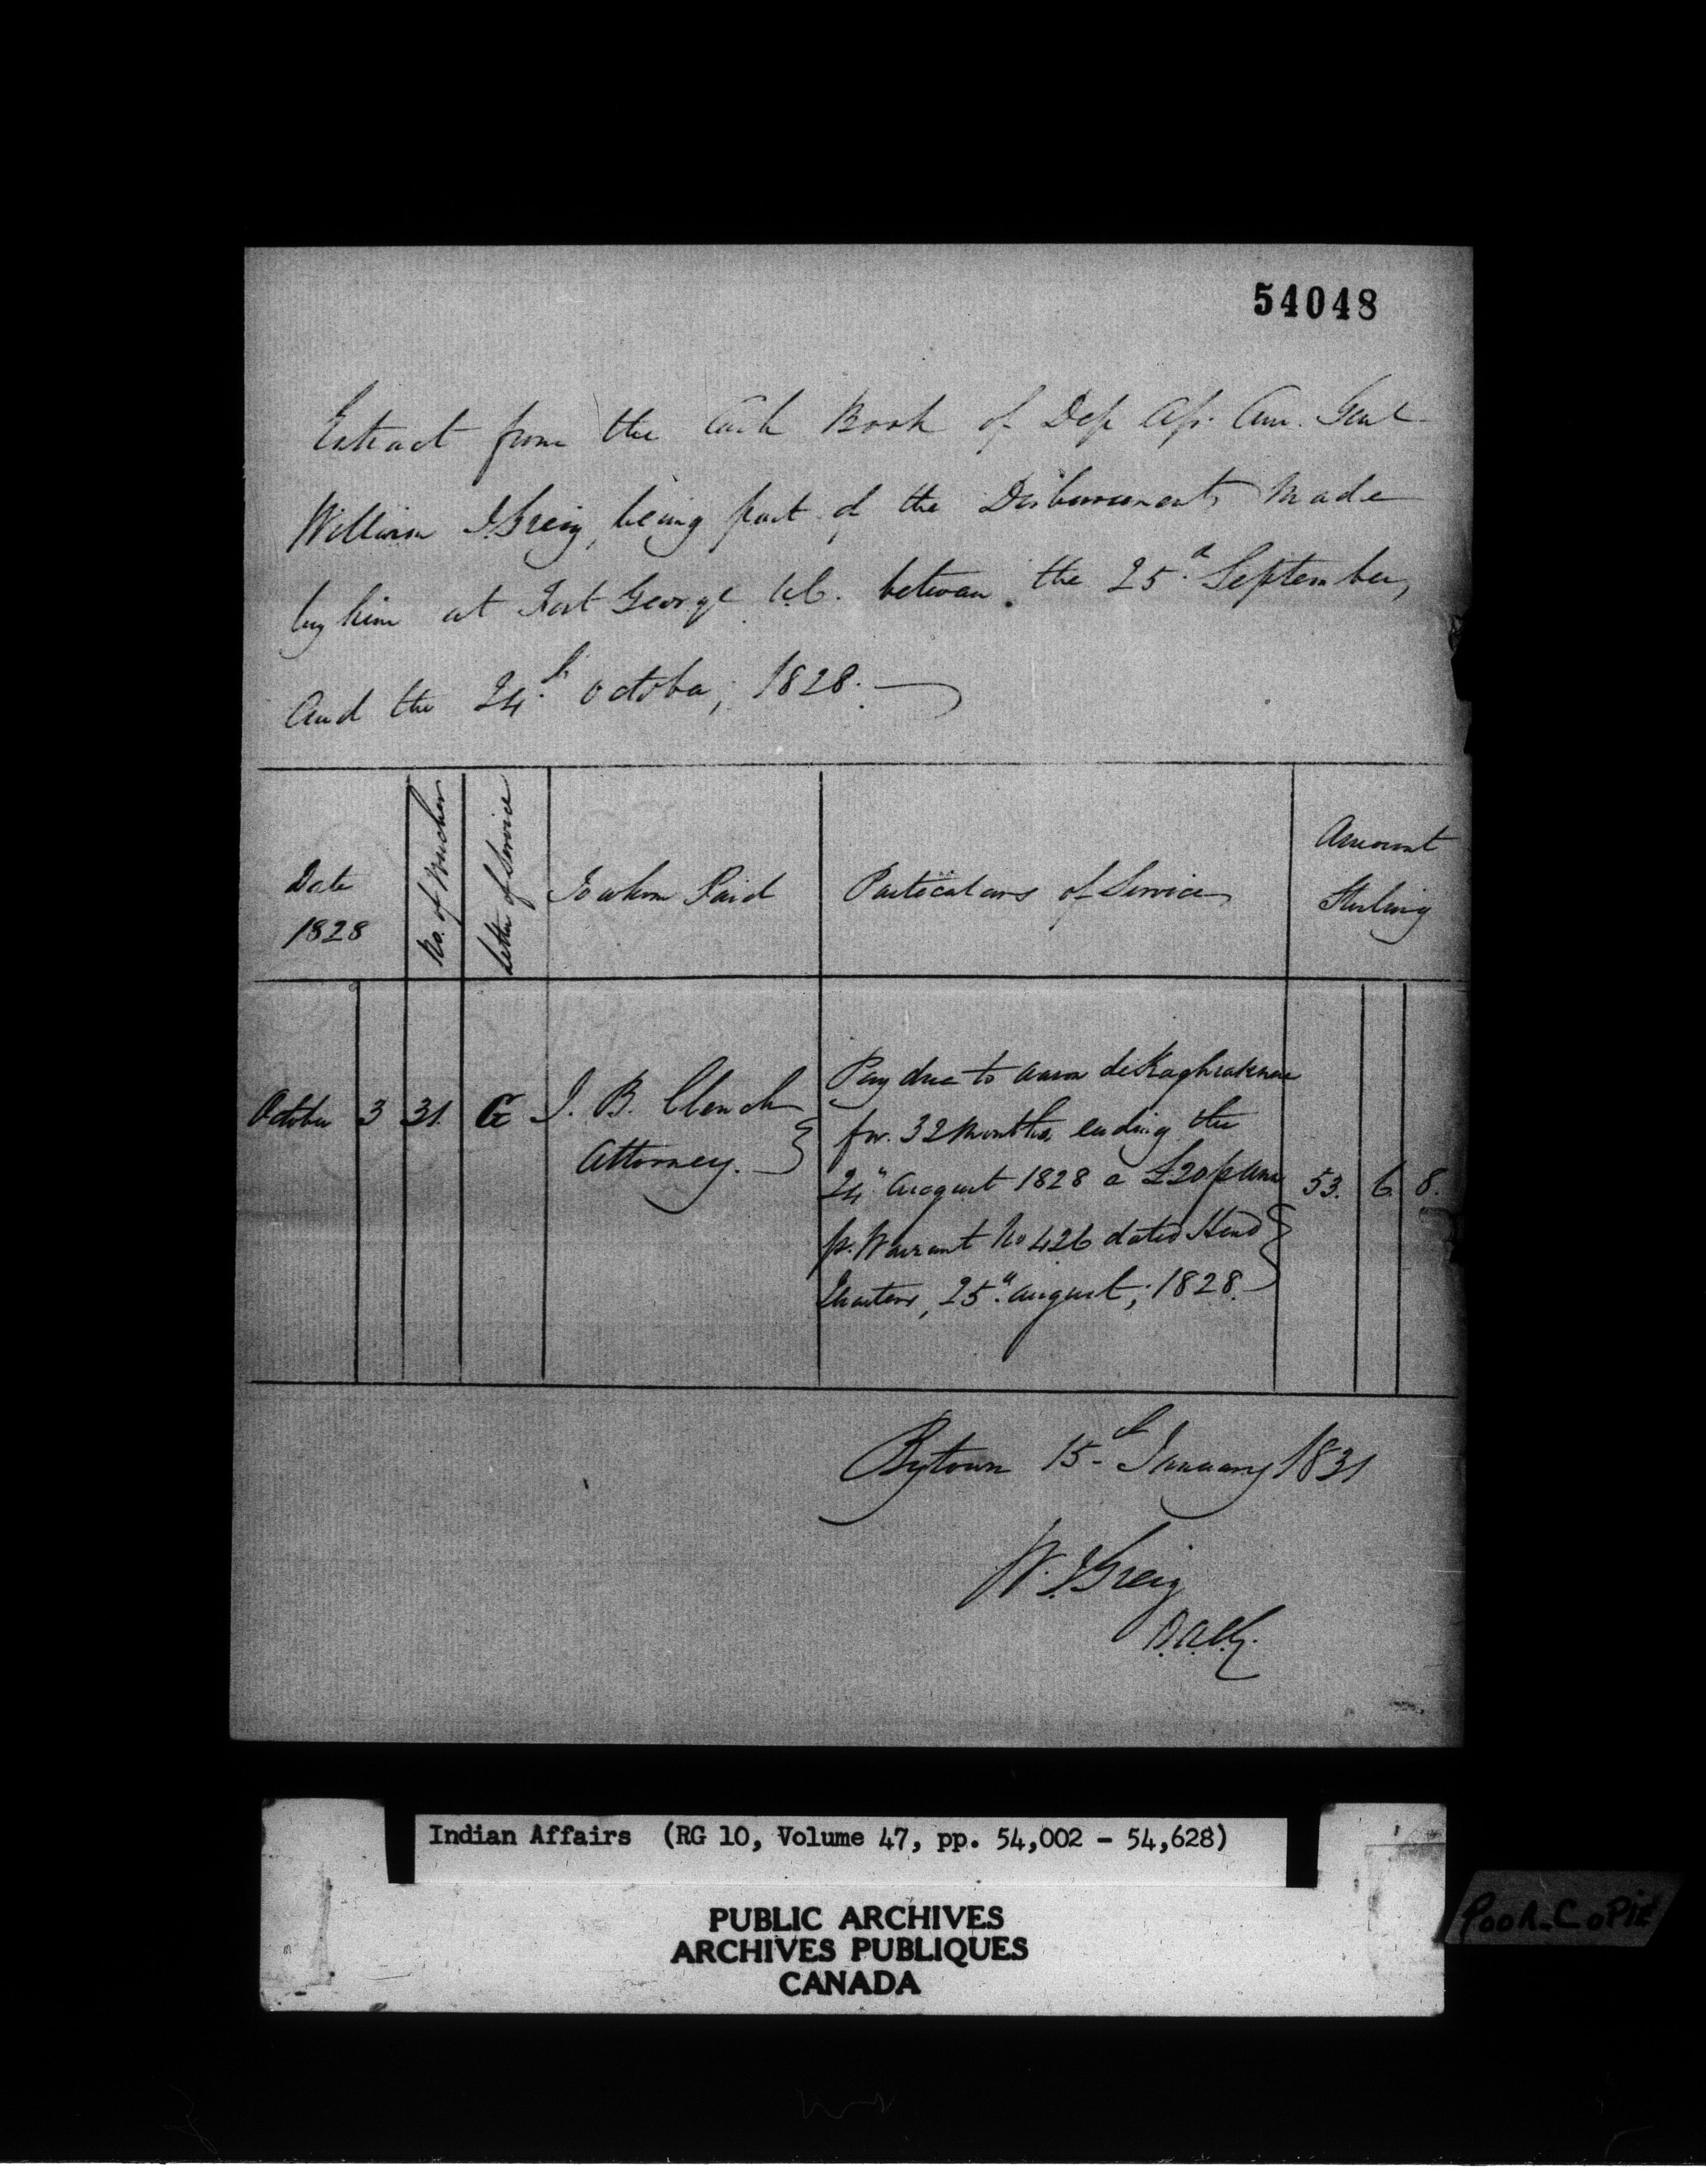 54048
Extract from the Cash Book of Dep Ass. Com. Genl
William J. Greig, being part of the Disbursements Made
by him at Fort George U.C. between the 25th September,
And the 24th October, 1828.
Date
1828
No. of Voucher
Letter of Service
To whom Paid
Particulars of Service
Amount
Sterling
October 3 31. G J. B. Clench
Attorney.
Pay due to Aaron
for 32 Months ending the
24th August 1828 a £20 p ann
p. Warrant No 426 dated Head
Quarters, 25th August, 1828.
53. 6. 8.
Bytown 15th January 1831
W. J. Greig
D.A.C.G.
Indian Affairs (RG 10, Volume 47, pp. 54,002 - 54,628)
PUBLIC ARCHIVES
ARCHIVES PUBLIQUES
CANADA
POOR COPIE